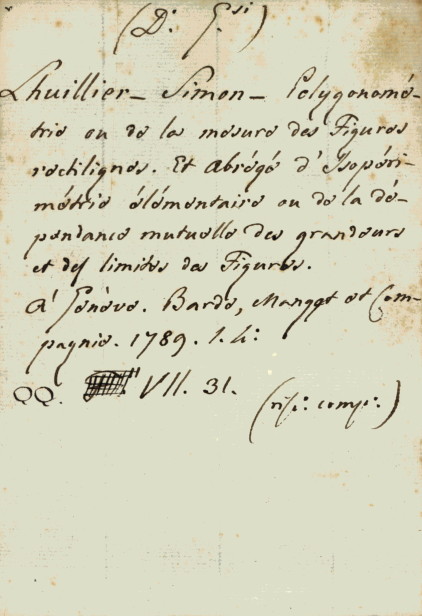 (D: G:si)
Lhuillier - Simon - Polygonomé-
trie ou de la mesure des Figures
rectilignes. Et Abrégé d'Isopéri-
métrie élémentaire ou de la dé-
pendance mutuelle des grandeurs
et des limites des Figures.
A' Genève. Barde, Manget et Com-
pagnie. 1789. 1. 4:
QQ. VII. 31.
(ris: comp:)